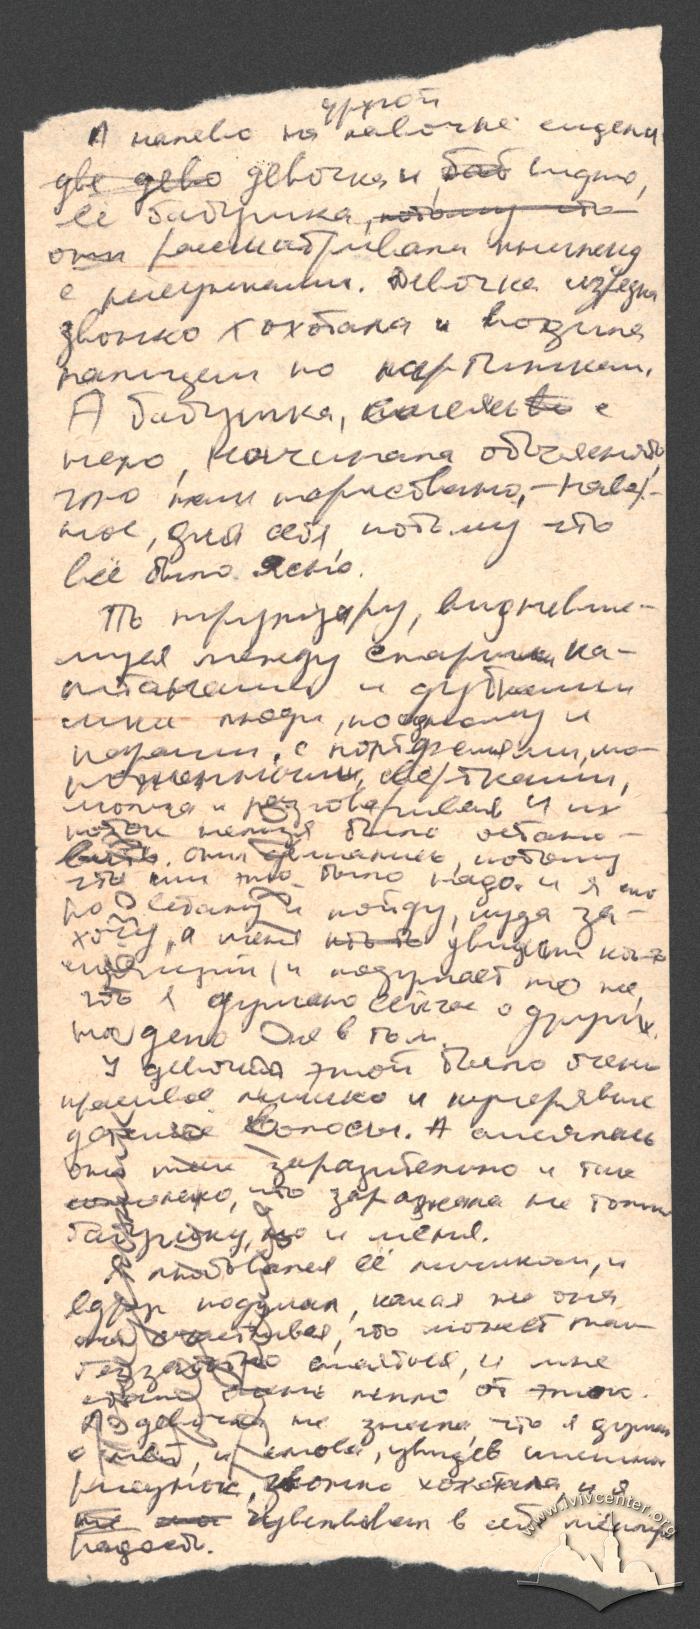 другой
А налево на лавочке сидели
две дево девочка и баб видно,
её бабушка, потому что
они рассматривали книжку
с рисунками. Девочка изредка
звонко хохотала и водила
пальцем по картинкам.
А бабушка, с
нею, начинала объяснять,
что там нарисовано, – навер-
ное, для себя потому что
всё было ясно.
По тротуару, видневше-
муся между старыми ка-
штанами и дубками
шли люди, по одному и
парами, с портфелями,
свёртками,
молча и разговаривая и их
поток нельзя было остано-
вить. Они двигались, потому
что им это было надо. и я
встану и пойду, куда за-
хочу, а меня кто то увидит кто-то
и подумает то же,
что я думаю сейчас о других.
Но дело не в том.
У девочки этой было очень
красивое личико и кучерявые
волосы. А смеялась
она так заразительно и так
что заражала не только
бабушку, но и меня.
Я любовался её личиком, и
вдруг подумал, какая же она
она счастливая, что может так
беззаботно смеяться, и мне
стало очень тепло от этого.
А девочка не знала что я думаю
о ней, и снова, увидев
рисунок, звонко хохотала и я
не мог чувствовал в себе
радость.
www.lvivcenter.org